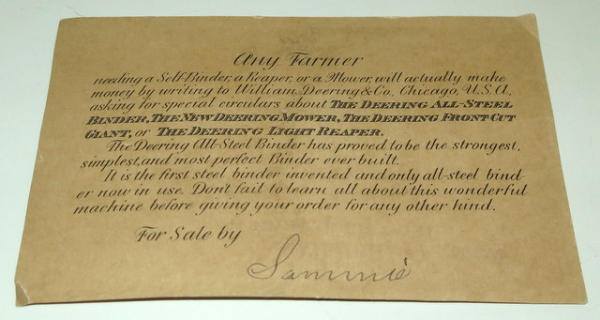 Any Farmer
needing a Self-Binder, a Reaper, or a Mower, will actually make
money by writing to William Deering & Co., Chicago, U.S.A.,
asking for special circulars about THE DEERING ALL-STEEL
BINDER, THE NEW DEERING MOWER, THE DEERING FRONT CUT
GIANT, or THE DEERING LIGHT REAPER.
The Deering All-Steel Binder has proved to be the strongest,
simplest, and most perfect Binder ever built.
It is the first steel binder invented and only all-steel bind-
er now in use. Don't fail to learn all about this wonderful
machine before giving your order for any other kind.
For Sale by
Sammie